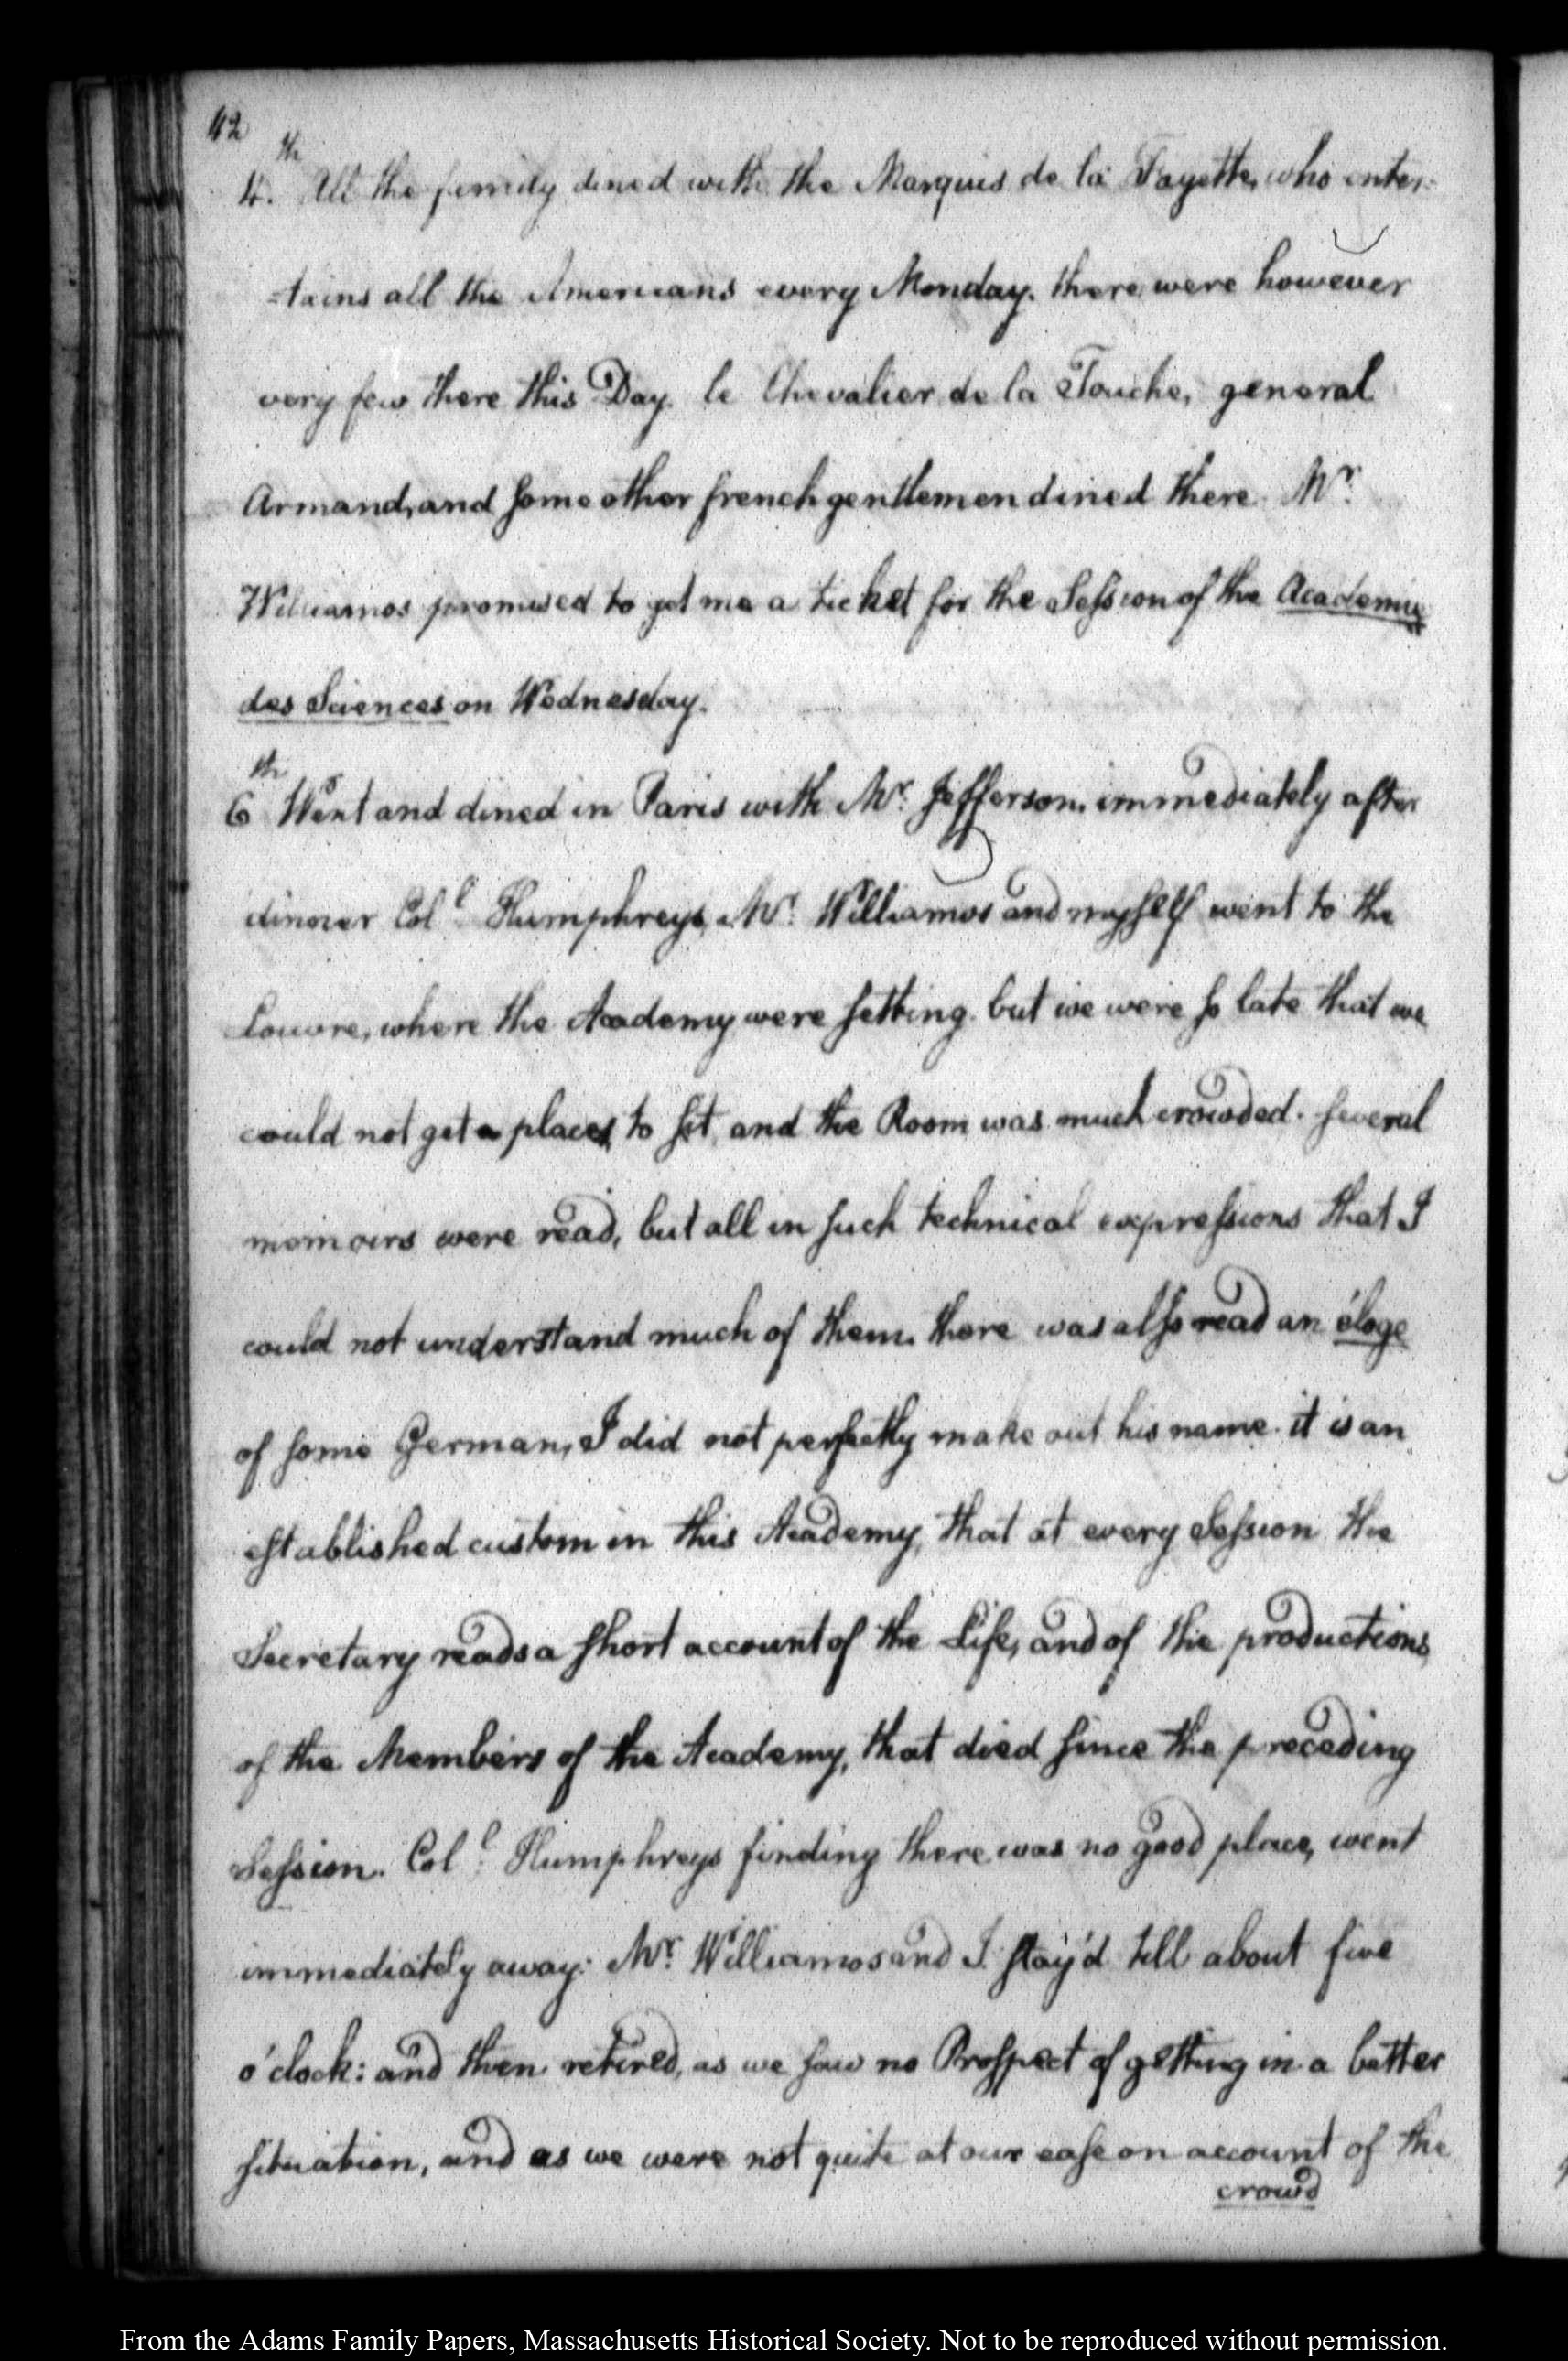 42
4.th All the family dined with the Marquis de la Fayette, who enter=
=tains all the Americans every Monday. there were however
very few there this Day. le Chevalier de la Touche, general
Armand, and some other french gentlemen dined there. Mr.
Williamos promised to get me a ticket for the Session of the Academie
des Sciences on Wednesday.
6th Went and dined in Paris with Mr. Jefferson. immediately after
dinner Coll. Humphreys, Mr. Williamos and myself went to the
Louvre, where the Academy were setting. but we were so late that we
could not get a places to sit, and the Room was much crowded. several
memoirs were read, but all in such technical expressions that I
could not understand much of them. there was also read an éloge
of some German, I did not perfectly make out his name. it is an
established custom in this Academy, that at every Session the
Secretary reads a short account of the Life, and of the productions,
of the Members of the Academy, that died since the preceding
Session. Coll. Humphreys finding there was no good place, went
immediately away: Mr. Williamos and I stay'd till about five
o'clock: and then retired, as we saw no Prospect of getting in a better
situation, and as we were not quite at our ease on account of the
crowd
From the Adams Family Papers, Massachusetts Historical Society. Not to be reproduced without permission.